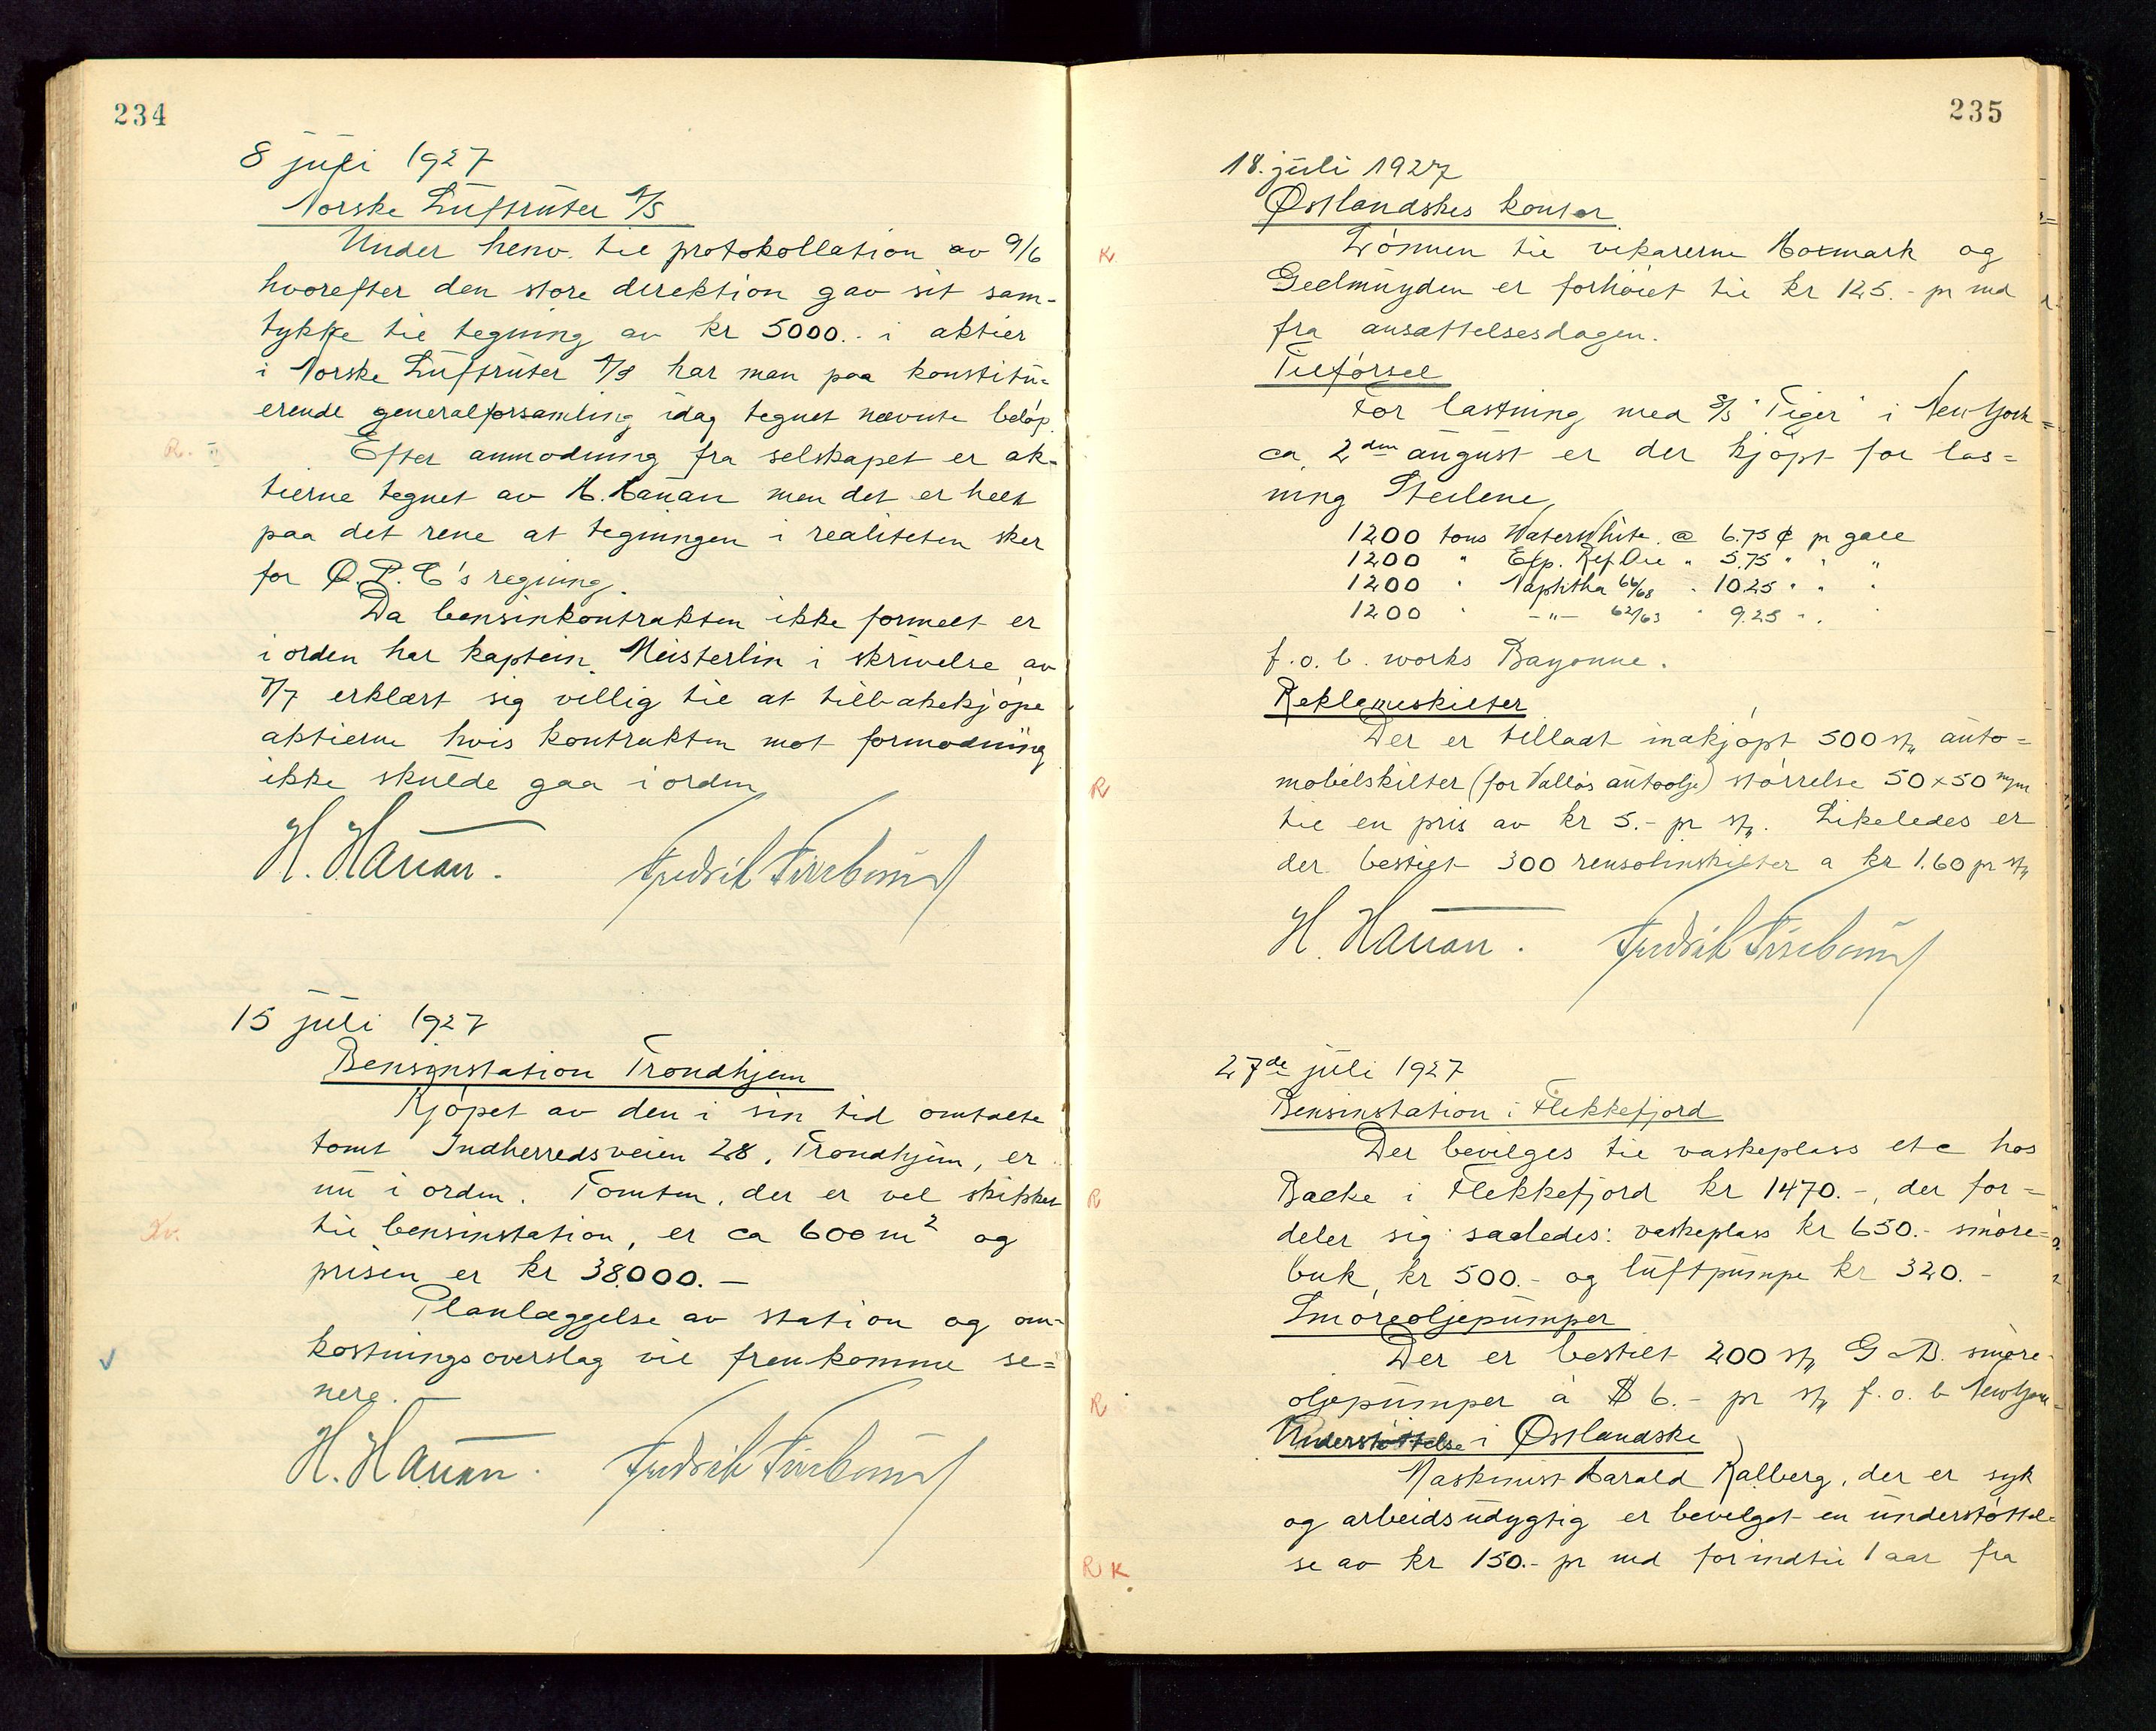 234
8 juli 1927
Norske Luftruter A/S
Under henv. til protokollation av 9/6
hvorefter den store direktion gav sit sam-
tykke til tegning av kr 5000.- i aktier
i Norske Luftruter A/S har man paa konstitu-
erende generalforsamling idag tegnet nævnte beløp.
R. II
Efter anmodning fra selskapet er ak-
tierne tegnet av H. Hauan men det er helt
paa det rene at tegningen i realiteten sker
for Ø.P.C's regning.
Da bensinkontrakten ikke formelt er
i orden har kaptein Meisterlin i skrivelse av
7/7 erklært sig villig til at tilbakekjøpe
aktierne hvis kontrakten mot formodning
ikke skulde gaa i orden
H. Hauan. Fredrik
15 juli 1927
Bensinstation Trondhjem
Kjøpet av den i sin tid omtalte
tomt Indherredsveien 28, Trondhjem, er
nu i orden. Tomten, der er vel skikket
til bensinstation, er ca 600 m2 og
prisen er kr 38.000.-
Planlæggelse av station og om-
kostningsoverslag vil fremkomme se=
nere.
H. Hauan. Fredrik
235
18. juli 1927
Østlandskes kontor
K
Lønnen til vikarerne Hoxmark og
Geelmuyden er forhøiet til kr 125.- pr md
fra ansættelsesdagen.
Tilførsel
For lastning med S/S "Tiger" i New York
ca 2den august er der kjøpt for los=
ning Steilene
1200 tons WaterWhite @ 6.75 ¢ pr gall
1200 " Exp. Ref Oil " 5.75 " " "
1200 " Naphtha 66/68 " 10.25 " " "
1200 " -"- 62/63 " 9.25 " "
f.o.b. works Bayonne.
Reklameskilter
Der er tilladt indkjøpt 500 stk auto=
R
mobilskilter (for Valløs autoolje) størrelse 50 x 50
til en pris av kr 5.- pr stk. Likeledes er
der bestilt 300 rensolinskilter a kr 1.60 pr stk
H. Hauan. Fredrik
27de juli 1927
Bensinstation i Flekkefjord
Der bevilges til vaskeplass etc hos
R
Backe i Flekkefjord kr 1470.-, der for=
deler sig saaledes: vaskeplass kr 650.- smøre=
buk kr 500.- og luftpumpe kr 320.-
Smøreoljepumper
Der er bestilt 200 stk G & B. smøre-
R
oljepumper à $ 6.- pr stk f.o.b New York
Understøttelse i Østlandske
Maskinist Harald Kalberg, der er syk
og arbeidsudygtig er bevilget en understøttel-
R K
se av kr 150.- pr md for indtil 1 aar fra